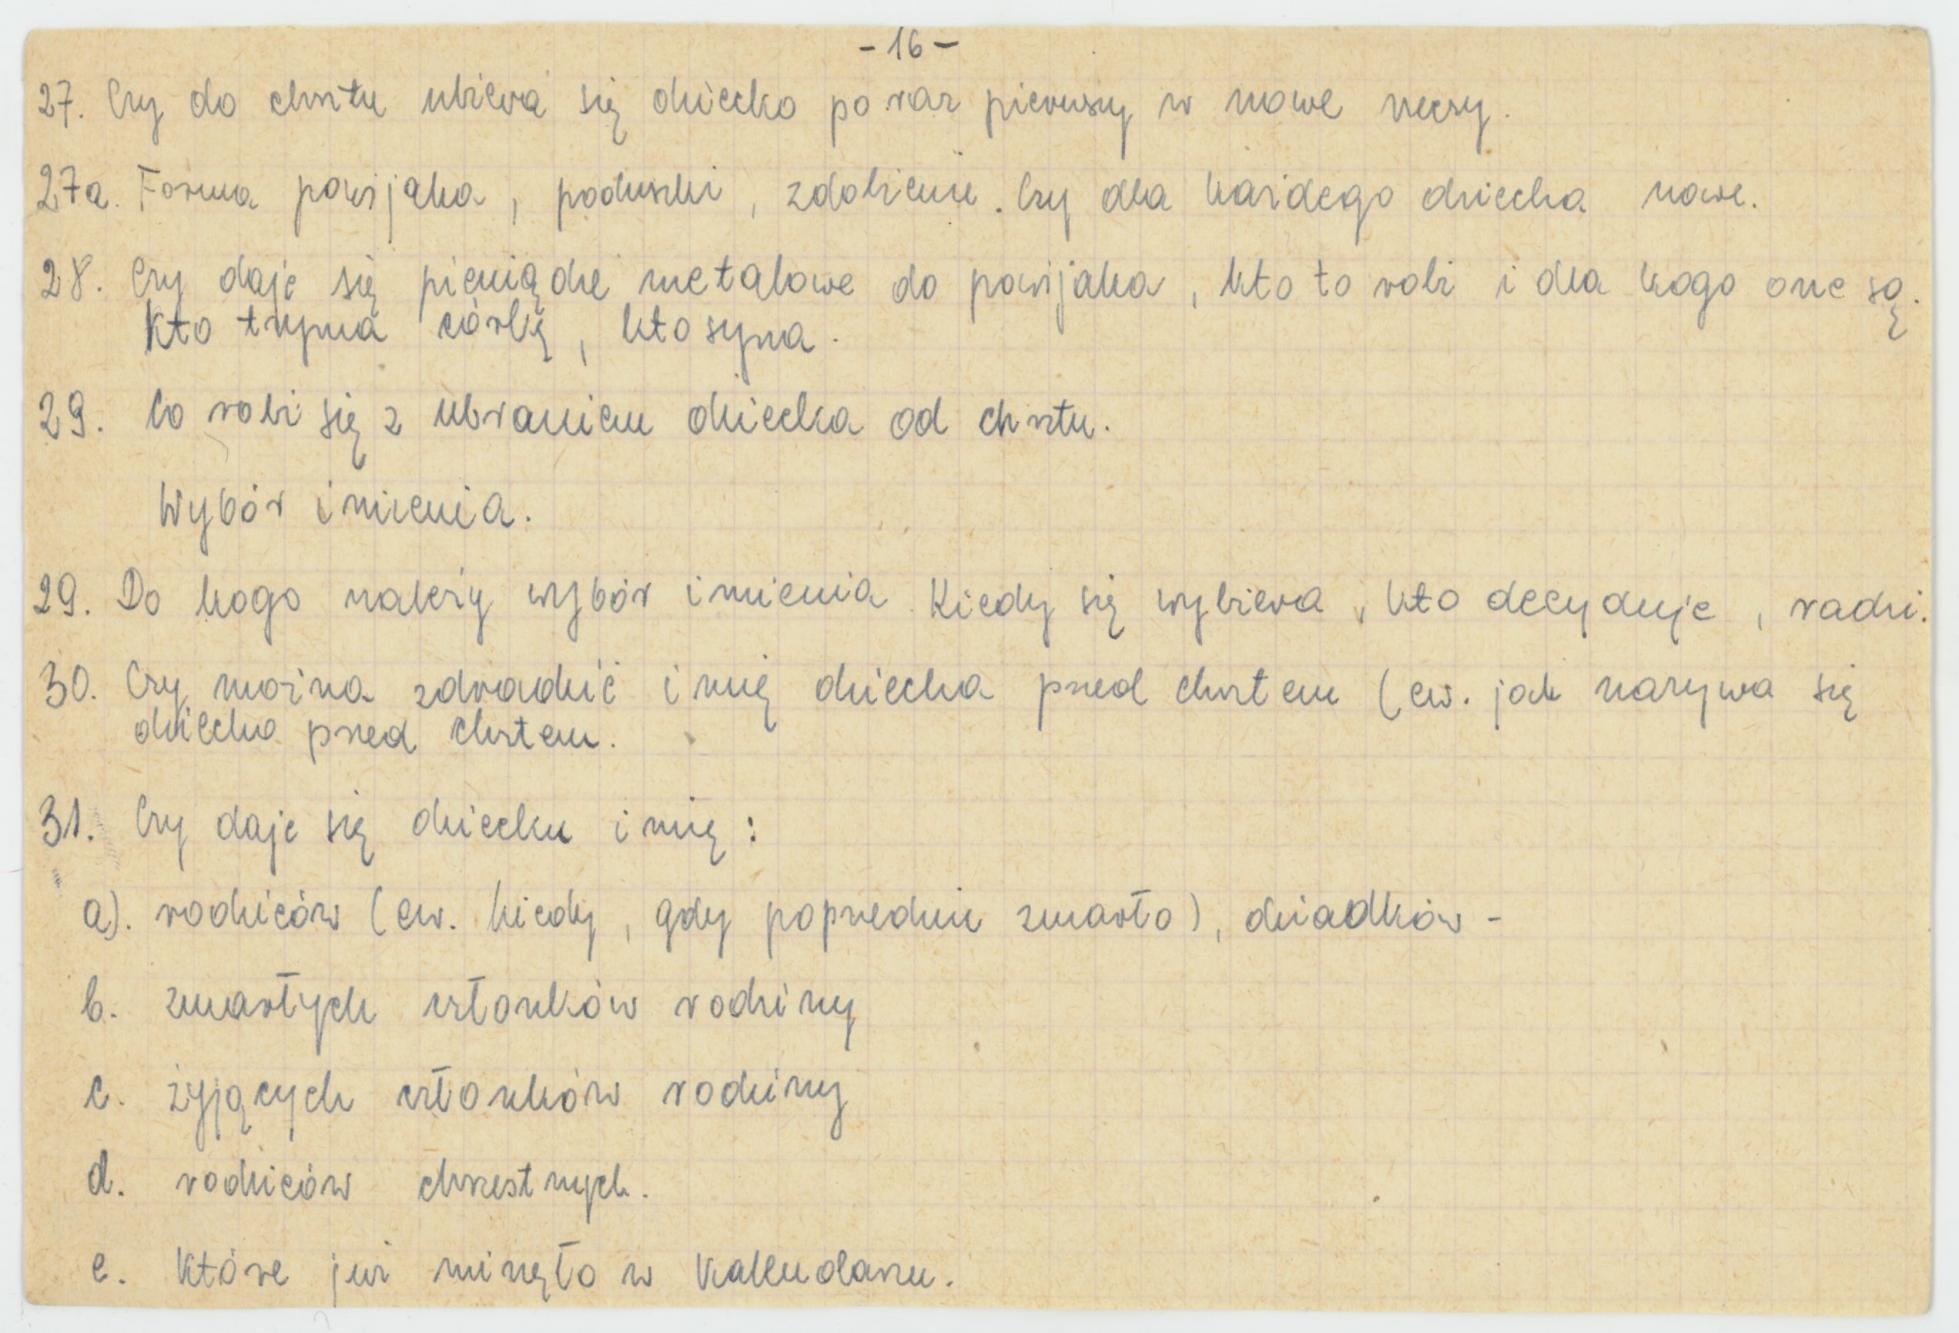 - 16 -
27. Czy do chrztu ubiera się dziecko po raz pierwszy w nowe rzeczy.
27a. Forma powijaka, poduszki, zdobienie. Czy dla każdego dziecka nowe.
28. Czy daje się pieniądze metalowe do powijaka, kto to robi i dla kogo one są.
Kto trzyma córkę, kto syna.
29. Co robi się z ubraniem dziecka od chrztu.
Wybór imienia.
29. Do kogo należy wybór imienia. Kiedy się wybiera, kto decyduje, radzi.
30. Czy można zdradzić imię dziecka przed chrztem (ew. jak nazywa się
dziecko przed chrztem.
31. Czy daje się dziecku imię:
a). rodziców (ew. kiedy, gdy poprzednie zmarło), dziadków -
b. zmarłych członków rodziny
c. żyjących członków rodziny
d. rodziców chrzestnych.
e. które już minęło w kalendarzu.